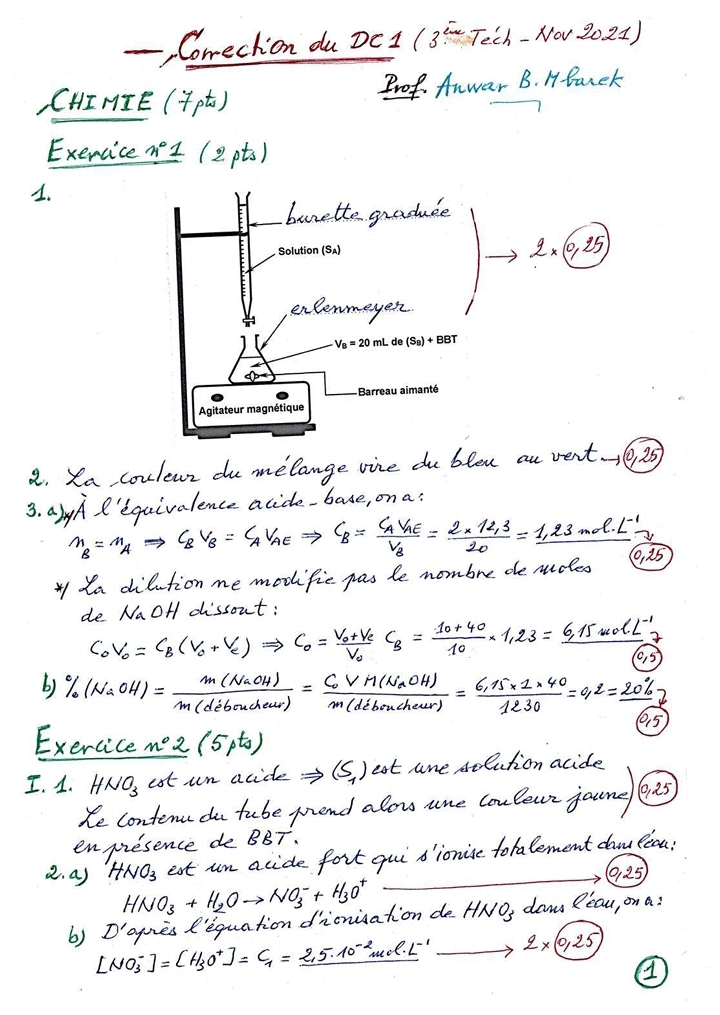 Correction du DC1 (3ème Tech - Nov 2021)
Prof. Anwar B. Mbarek
CHIMIE (7pts)
Exercice n°1 (2 pts)
1.
burette graduée
Solution (SA)
→ 2 × 0,25
erlenmeyer
VB = 20 mL de (SB) + BBT
Barreau aimanté
Agitateur magnétique
2. La couleur du mélange vire du bleu au vert. → 0,25
3. a) */ À l'équivalence acide-base, on a:
nB = nA ⇒ CB VB = CA VAE ⇒ CB = CA VAE / VB = 2 × 12,3 / 20 = 1,23 mol.L⁻¹ → 0,25
*/ La dilution ne modifie pas le nombre de moles
de NaOH dissout :
C0V0 = CB (V0 + Ve) ⇒ C0 = V0+Ve / V0 CB = 10 + 40 / 10 × 1,23 = 6,15 mol.L⁻¹ → 0,5
b) % (NaOH) = m (NaOH) / m (déboucheur) = C0 V M(NaOH) / m (déboucheur) = 6,15 × 1 × 40 / 1230 = 0,2 = 20% → 0,5
Exercice n°2 (5pts)
I. 1. HNO3 est un acide ⇒ (S1) est une solution acide
Le contenu du tube prend alors une couleur jaune 0,25
en présence de BBT.
2. a) HNO3 est un acide fort qui s'ionise totalement dans l'eau:
HNO3 + H2O → NO3⁻ + H3O⁺ → 0,25
b) D'après l'équation d'ionisation de HNO3 dans l'eau, on a:
[NO3⁻] = [H3O⁺] = C1 = 2,5.10⁻² mol.L⁻¹ → 2 × 0,25
1